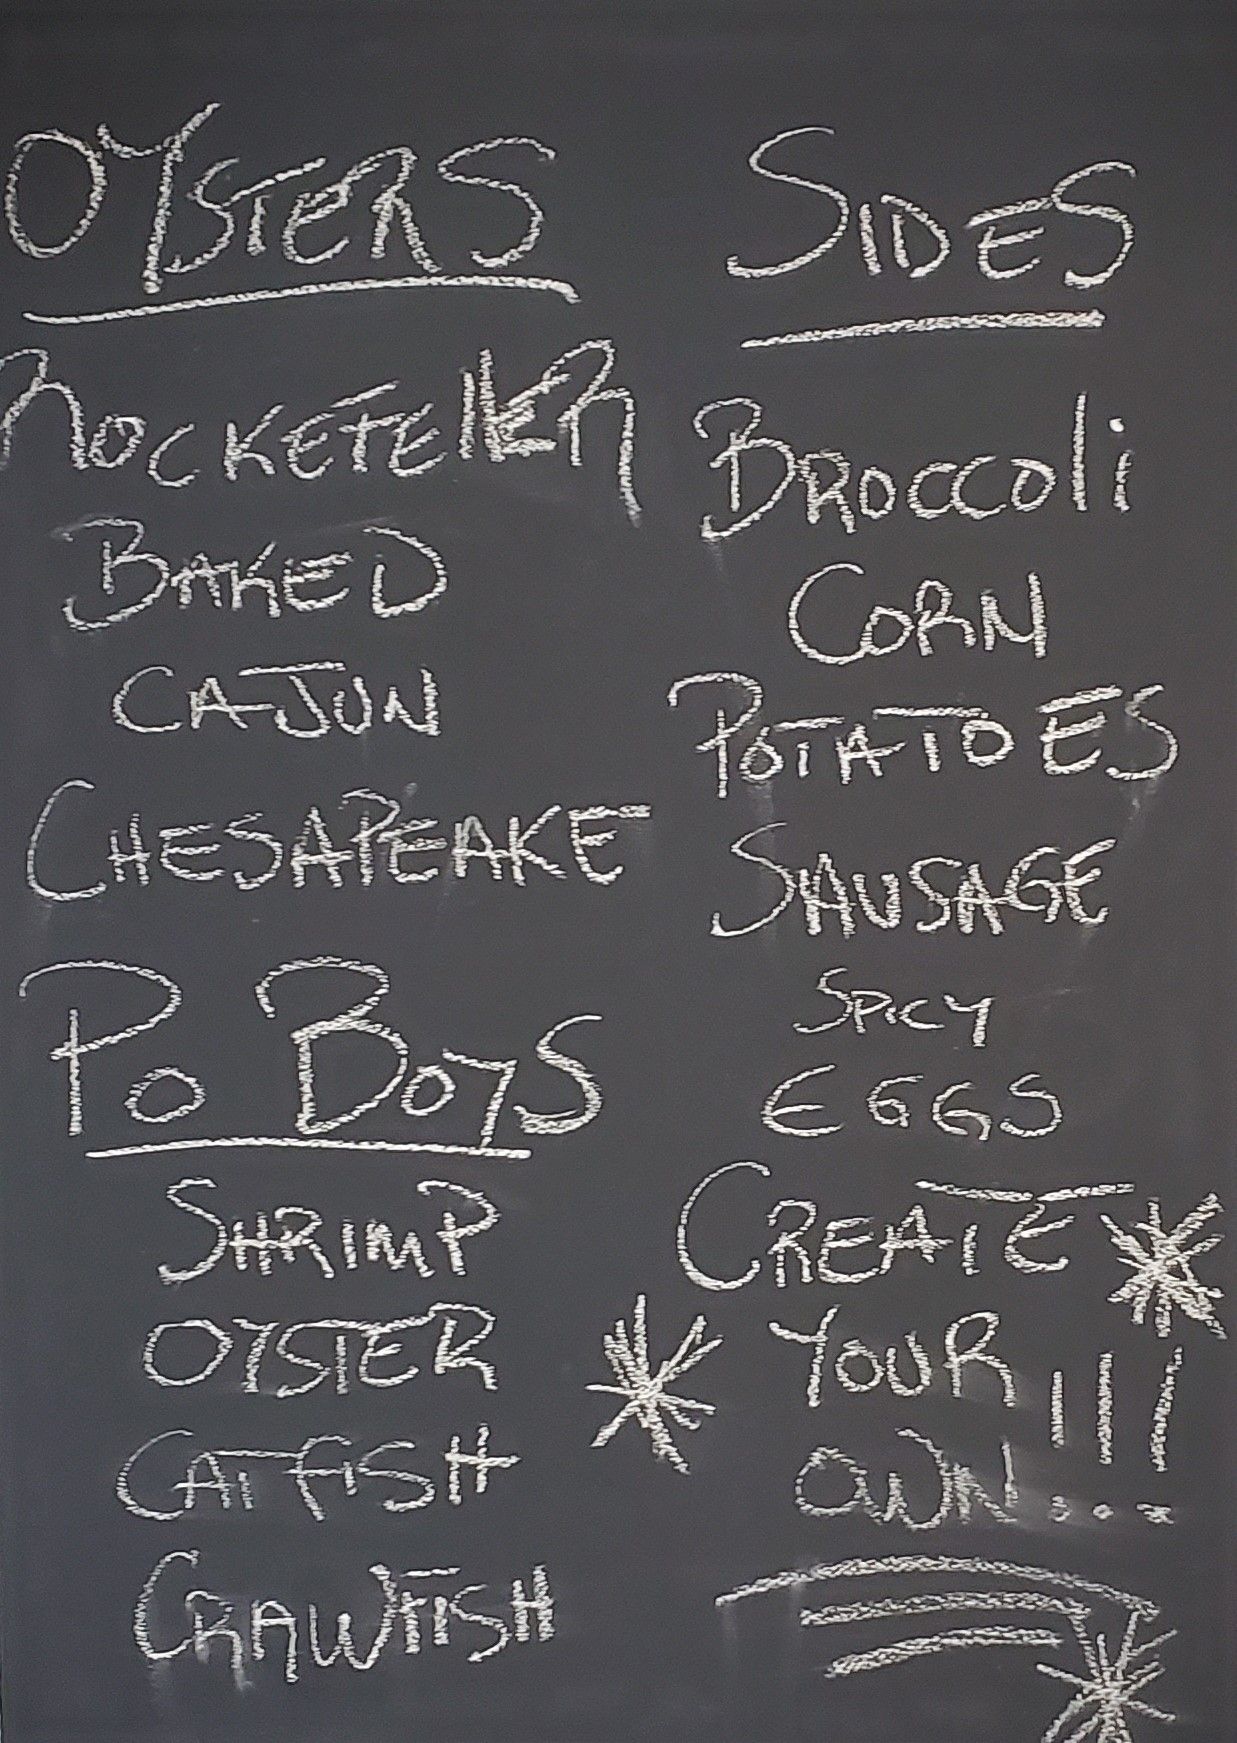 OYSTERS
ROCKEFELLER
BAKED
CAJUN
CHESAPEAKE
PO BOYS
SHRIMP
OYSTER
CATFISH
CRAWFISH
SIDES
BROCCOLi
CORN
POTATOES
SAUSAGE
SPICY
EGGS
CREATE
YOUR
OWN!!!